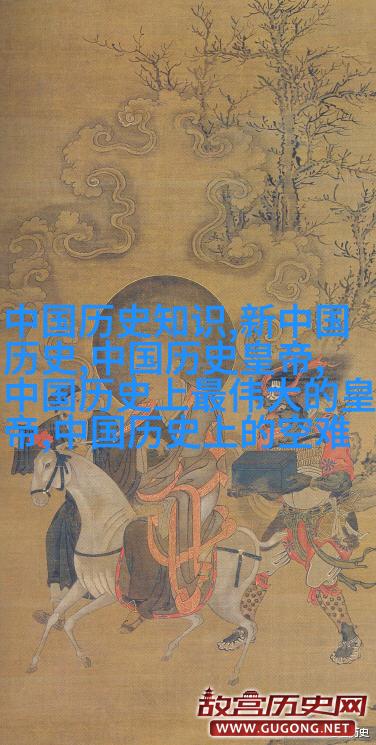 中国历史知识,新中国
历史,中国历史皇帝,
中国历史上最伟大的皇
帝,中国历史上的空难
故宫历史网
WWW.GUGONG.NET